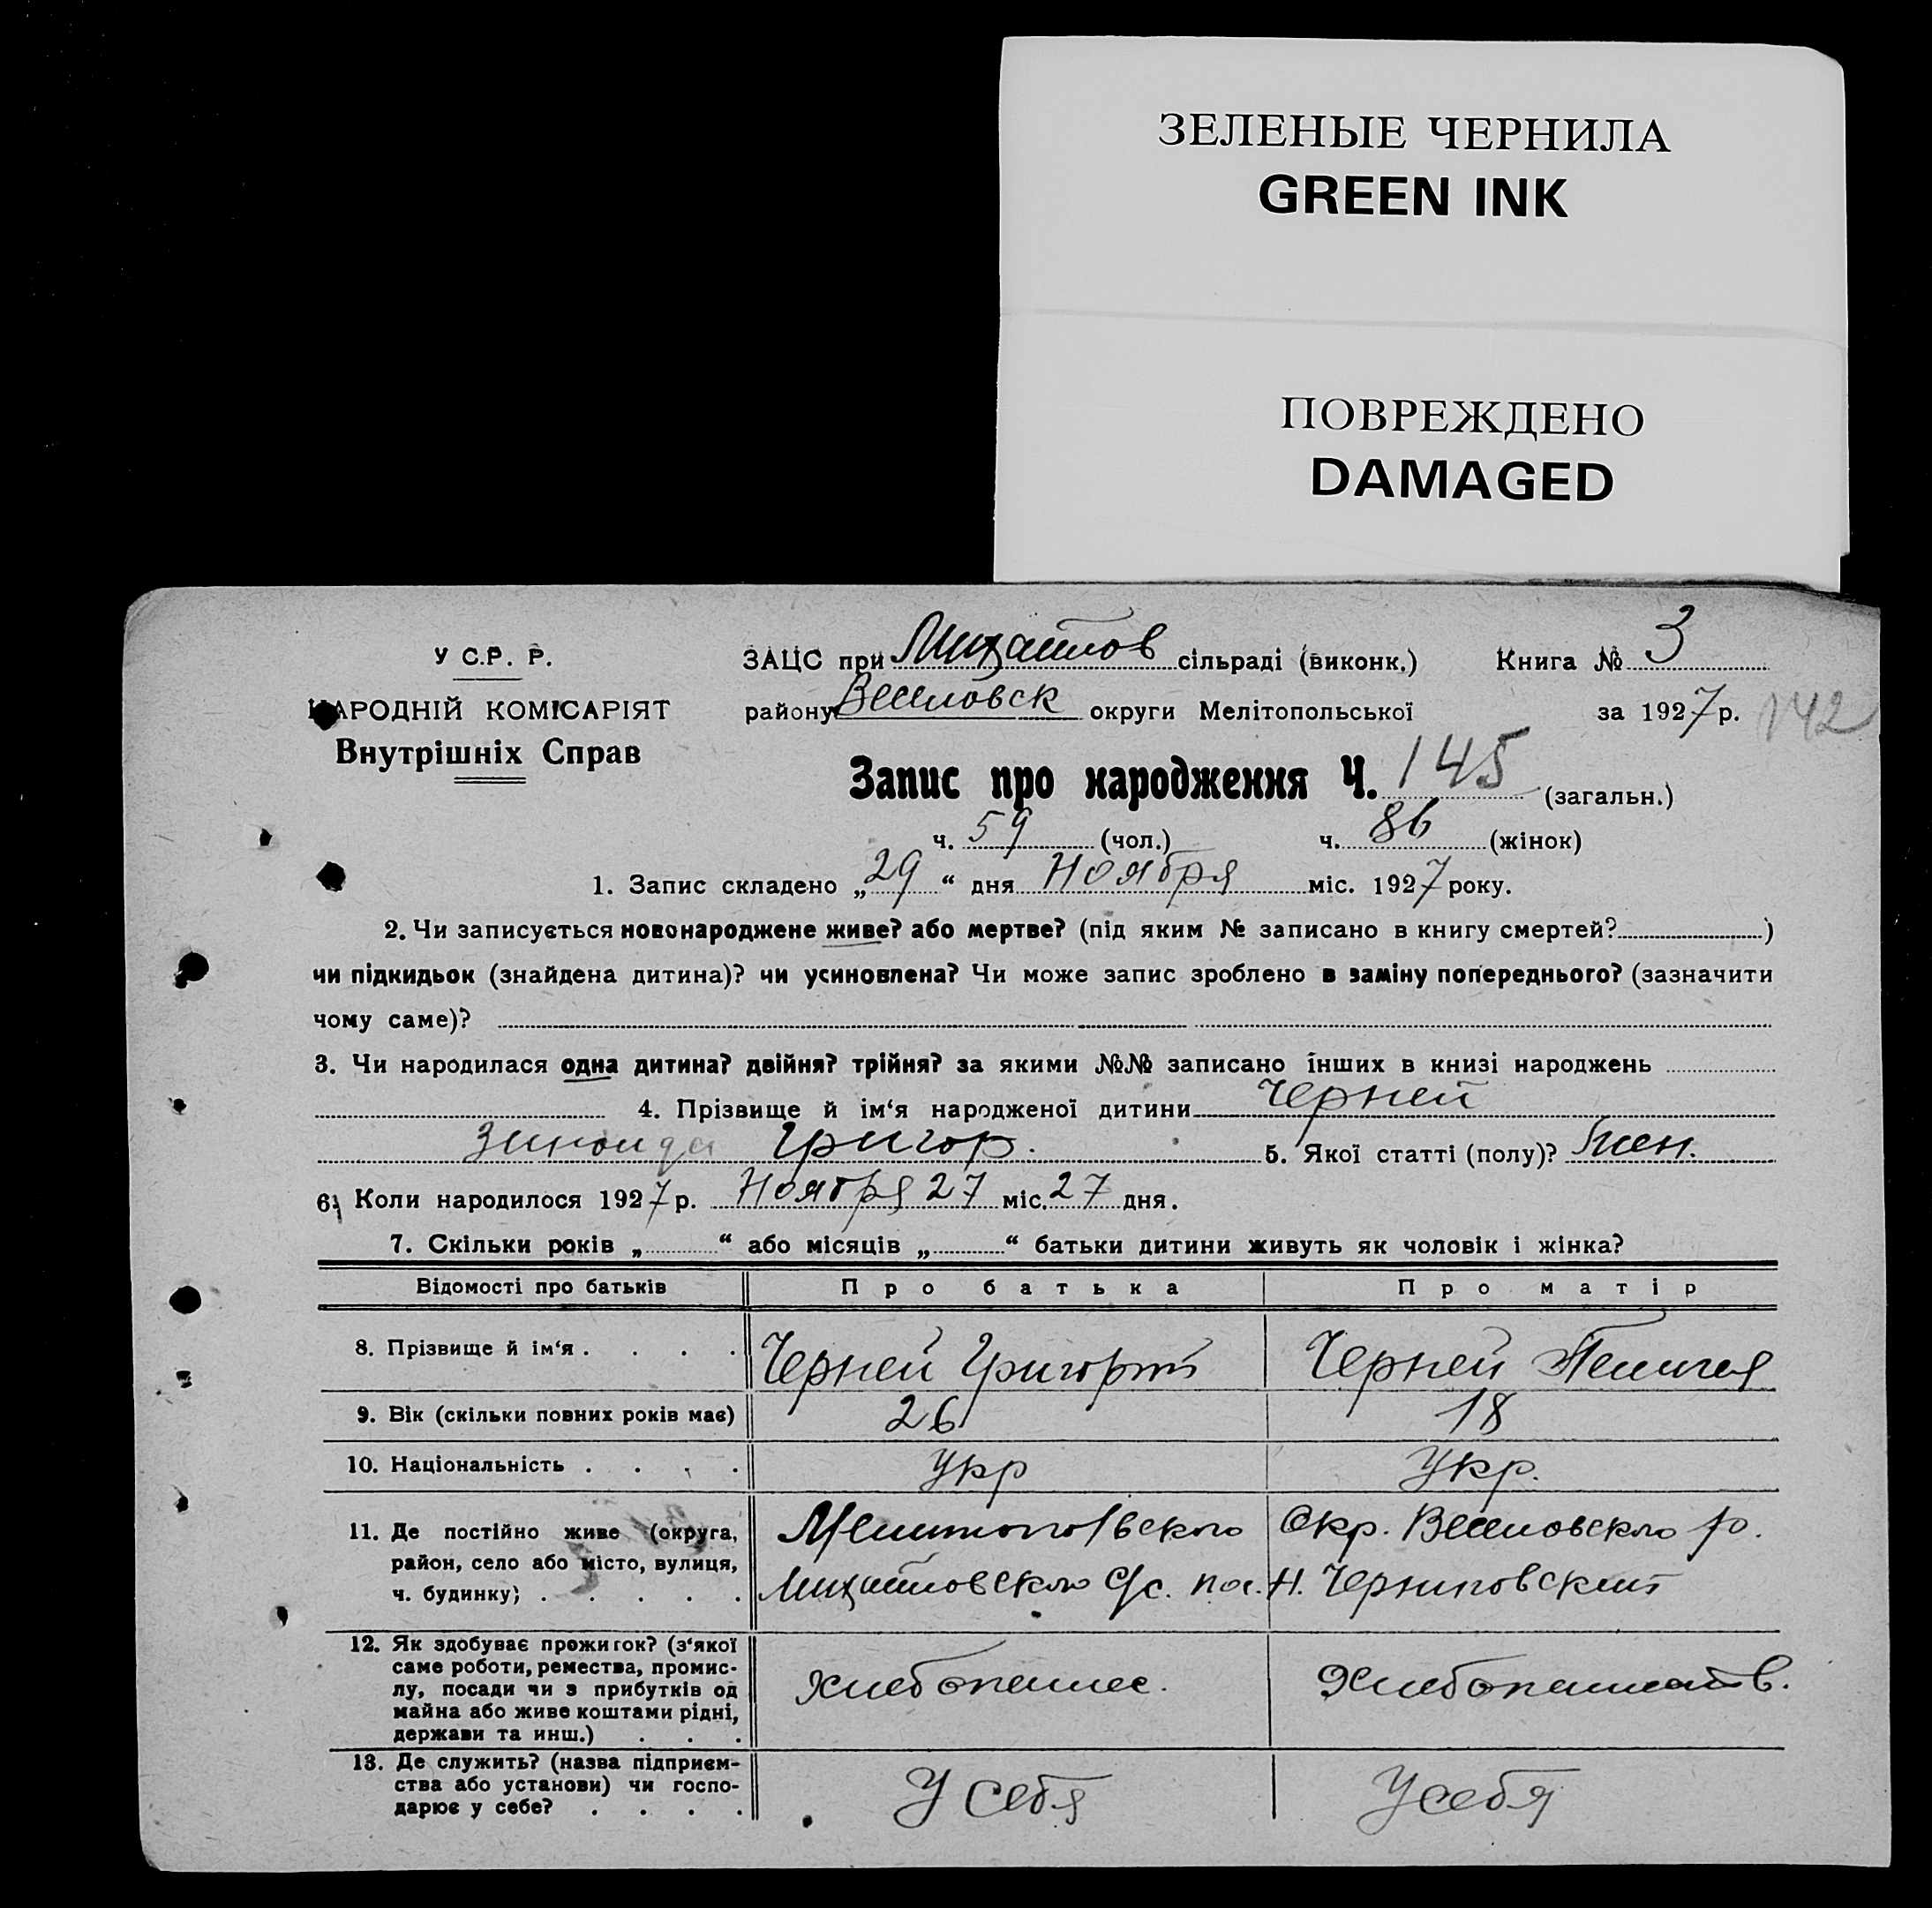 ЗЕЛЕНЫЕ ЧЕРНИЛА
GREEN INK
ПОВРЕЖДЕНО
DAMAGED
У С.Р. Р.
НАРОДНІЙ КОМІСАРІЯТ
Внутрішніх Справ
ЗАЦС при Михайлов сільраді (виконк.) Книга № 3
району Веселовск округи Мелітопольської за 1927 р. 142
Запис про народження Ч. 145 (загальн.)
ч. 59 (чол.) ч. 86 (жінок)
1. Запис складено „29“ дня Ноября міс. 1927 року.
2. Чи записується новонароджене живе? або мертве? (під яким № записано в книгу смертей? )
чи підкидьок (знайдена дитина)? чи усиновлена? Чи може запис зроблено в заміну попереднього? (зазначити
чому саме)?
3. Чи народилася одна дитина? двійня? трійня? за якими №№ записано інших в книзі народжень
4. Прізвище й ім‘я народженої дитини Черней
Зинаида Григор. 5. Якої статті (полу)? жен.
6. Коли народилося 1927 р. Ноября 27 міс. 27 дня.
7. Скільки років „ “ або місяців „ “ батьки дитини живуть як чоловік і жінка?
Відомості про батьків Про батька Про матір
8. Прізвище й ім‘я . . . . Черней Григорий Черней
9. Вік (скільки повних років має) 26 18
10. Національність . . . . Укр Укр.
11. Де постійно живе (округа, Мелитопольского Окр. Веселовского р.
район, село або місто, вулиця,
ч. будинку) . . . . . Михайловского С/с. пос. Н. Черниговский
12. Як здобуває прожиток? (з‘якої
саме роботи, ремества, промис-
лу, посади чи з прибутків од
майна або живе коштами рідні,
держави та инш.) . . . Хлебопашес. Хлебопашеств.
13. Де служить? (назва підприєм-
ства або установи) чи госпо-
дарює у себе? . . . . У себя У себя